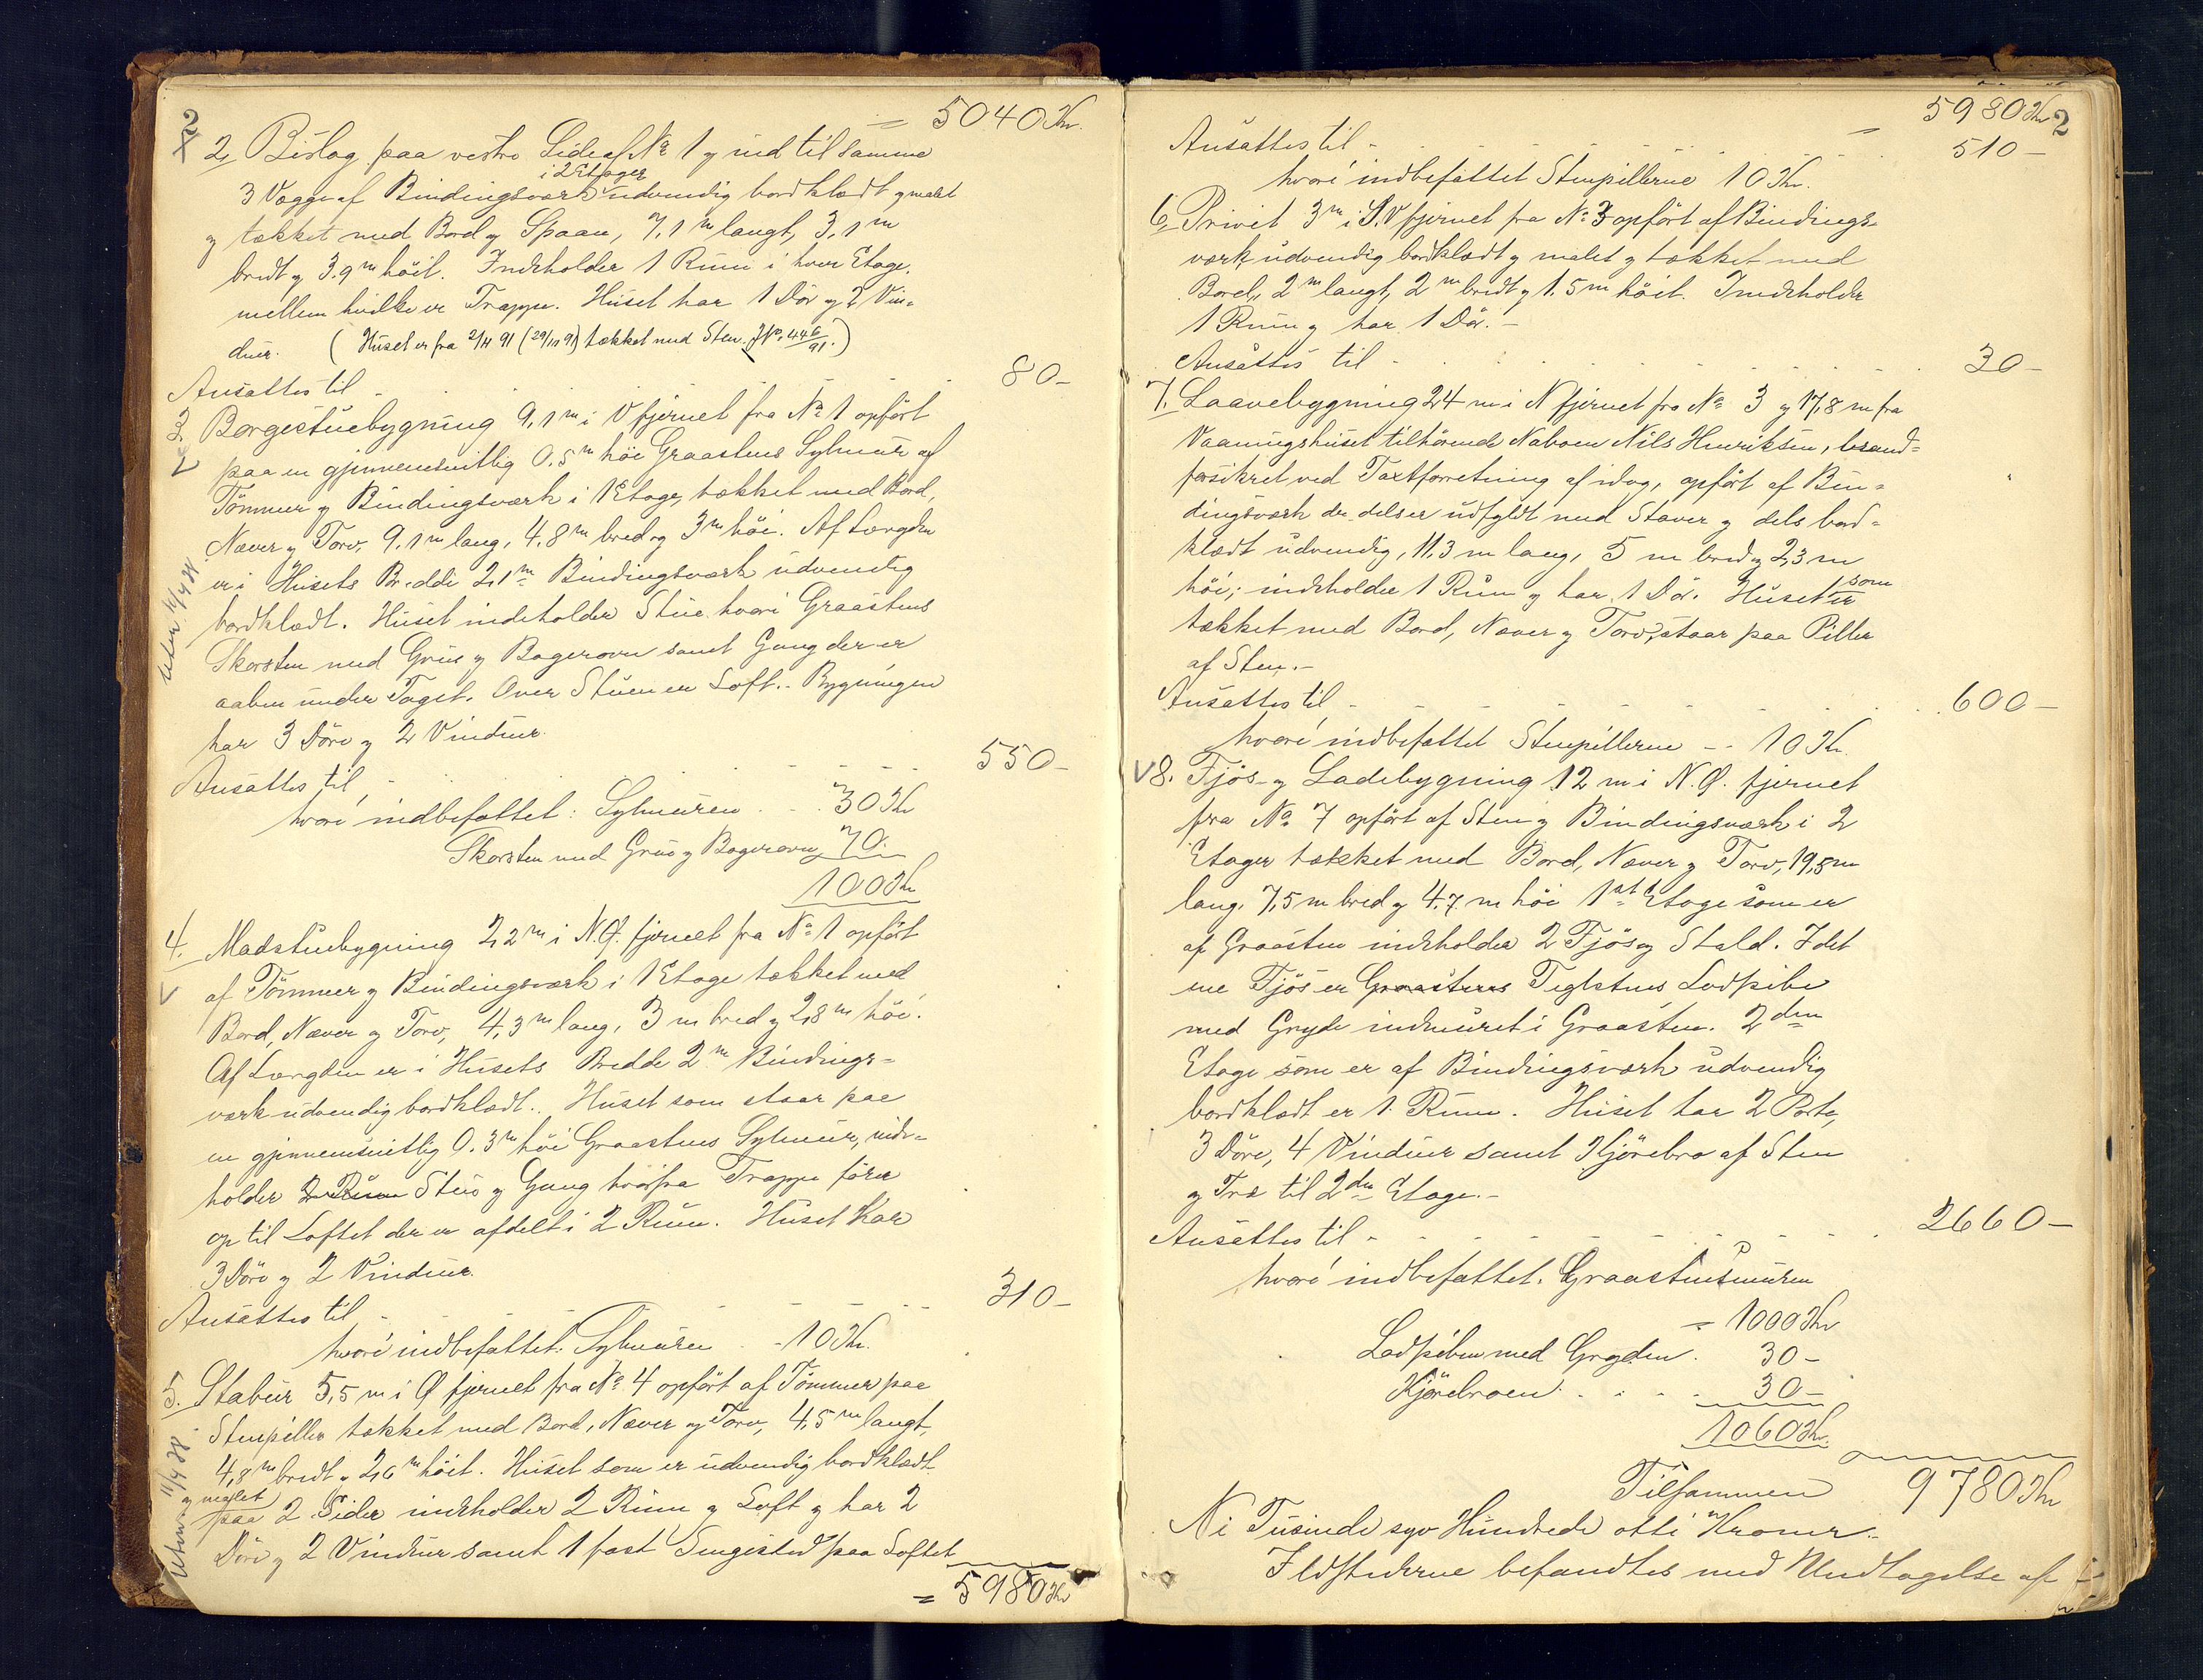 2
= 5040 Kr.
2, Bislag paa vestre Side af No 1 og ind til samme
i 2 Etager
3 Vægge af Bindingsværk udvendig bordklædt og malt
og tækket med Bord og Spaan, 7,1 m langt, 3,1 m
bredt og 3.9 m höit. Indeholder 1 Rum i hver Etage,
mellem hvilke er Trappe. Huset har 1 Dör og 2 Vin=
duer. (Huset er fra 2/11 91 (29/10 91) tækket med Sten. J No. 446/91.)
Ansattes til - - - - 80 -
3. Borgestuebygning 9,1 m i V fjernet fra No 1 opfört
paa en gjennemsnitlig 0.5 m höi Graastens Sylmur af
Tömmer og Bindingsværk i 1 Etage, tækket med Bord,
Næver og Torv, 9.1 m lang, 4.8 m bred og 3 m höi. Af Længden
er i Husets Bredde 2,1 m Bindingsværk udvendig
bordklædt. Huset indeholder Stue hvori Graastens
Skorsten med Grue og Bagerovn samt Gang der er
aaben under Taget. Over Stuen er Loft. - Bygningen
har 3 Döre og 2 Vinduer.
Ansattes til - - - - 550 -
hvori indbefattet: Sylmuren - - 30 Kr
Skorsten med Grue og Bagerovn 70.
100 Kr
4. Madstuebygning 2,2 m i N.Ø. fjernet fra No 1 opfört
af Tömmer og Bindingsværk i 1 Etage tækket med
Bord, Næver og Torv, 4,3 m lang, 3 m bred og 2,8 m höi.
Af Længden er i Husets Bredde 2 m Bindings=
værk udvendig bordklædt. Huset som staar paa
en gjennemsnitlig 0.3 m höi Graastens Sylmur, inde=
holder 2 Rum Stue og Gang hvorfra Trappe förer
op til Loftet der er afdelt i 2 Rum. Huset har
3 Döre og 2 Vinduer.
Ansattes til - - - - 310 -
hvori indbefattet: Sylmuren - - 10 Kr.
5. Stabur 5,5 m i Ø fjernet fra No 4 opfört af Tömmer paa
Stenpiller tækket med Bord, Næver og Torv, 4,5 m langt,
4,8 m bredt og 2,6 m höit. Huset som er udvendig bordklædt
og malet
paa 2 Sider indeholder 2 Rum og Loft og har 2
Döre og 2 Vinduer samt 1 fast Sengested paa Loftet
= 5980 Kr
5980 Kr 2
Ansattes til - - - - 510 -
hvori indbefattet Stenpillerne 10 Kr.
6, Privet 3 m i S.V fjernet fra No 3 opfört af Bindings=
værk, udvendig bordklædt og malet og tækket med
Bord, 2 m langt, 2 m bredt og 1.5 m höit. Indeholder
1 Rum og har 1 Dör. -
Ansattes til - - - - 30 -
7. Laavebygning 24 m i N fjernet fra No 3 og 17,8 m fra
Vaaningshuset tilhörende Naboen Nils Henriksen, brand=
forsikret ved Taxtforretning af idag, opfört af Bin=
dingsværk der dels er udfyldt med Staver og dels bord=
klædt udvendig, 11,3 m lang, 5 m bred og 2,3 m
höi; indeholder 1 Rum og har 1 Dör. Huset som er
tækket med Bord, Næver og Torv, staar paa Piller
af Sten. -
Ansattes til - - - - 600 -
hvori indbefattet Stenpillerne - - 10 Kr.
V 8. Fjös- og Ladebygning 12 m i N.Ø. fjernet
fra No 7 opfört af Sten og Bindingsværk i 2
Etager tækket med Bord, Næver og Torv, 19,5 m
lang, 7,5 m bred og 4.7 m höi 1ste Etage som er
af Graasten indeholder 2 Fjös og Stald. I det
ene Fjös er Graastens Teglstens Lodpibe
med Gryde indmuret i Graasten. 2den
Etage som er af Bindingsværk udvendig
bordklædt er 1 Rum. Huset har 2 Porte,
3 Döre, 4 Vinduer samt Kjörebro af Sten
og Træ til 2den Etage. -
Ansættes til - - - - 2660 -
hvori indbefattet. Graastensmuren
= 1000 Kr
Lodpiben med Gryden. 30 -
Kjörebroen. - - - 30 -
1060 Kr.
Tilsammen 9780 Kr
Ni Tusinde syv Hundrede otti Kroner. -
Ildstederne befandtes med Undtagelse af